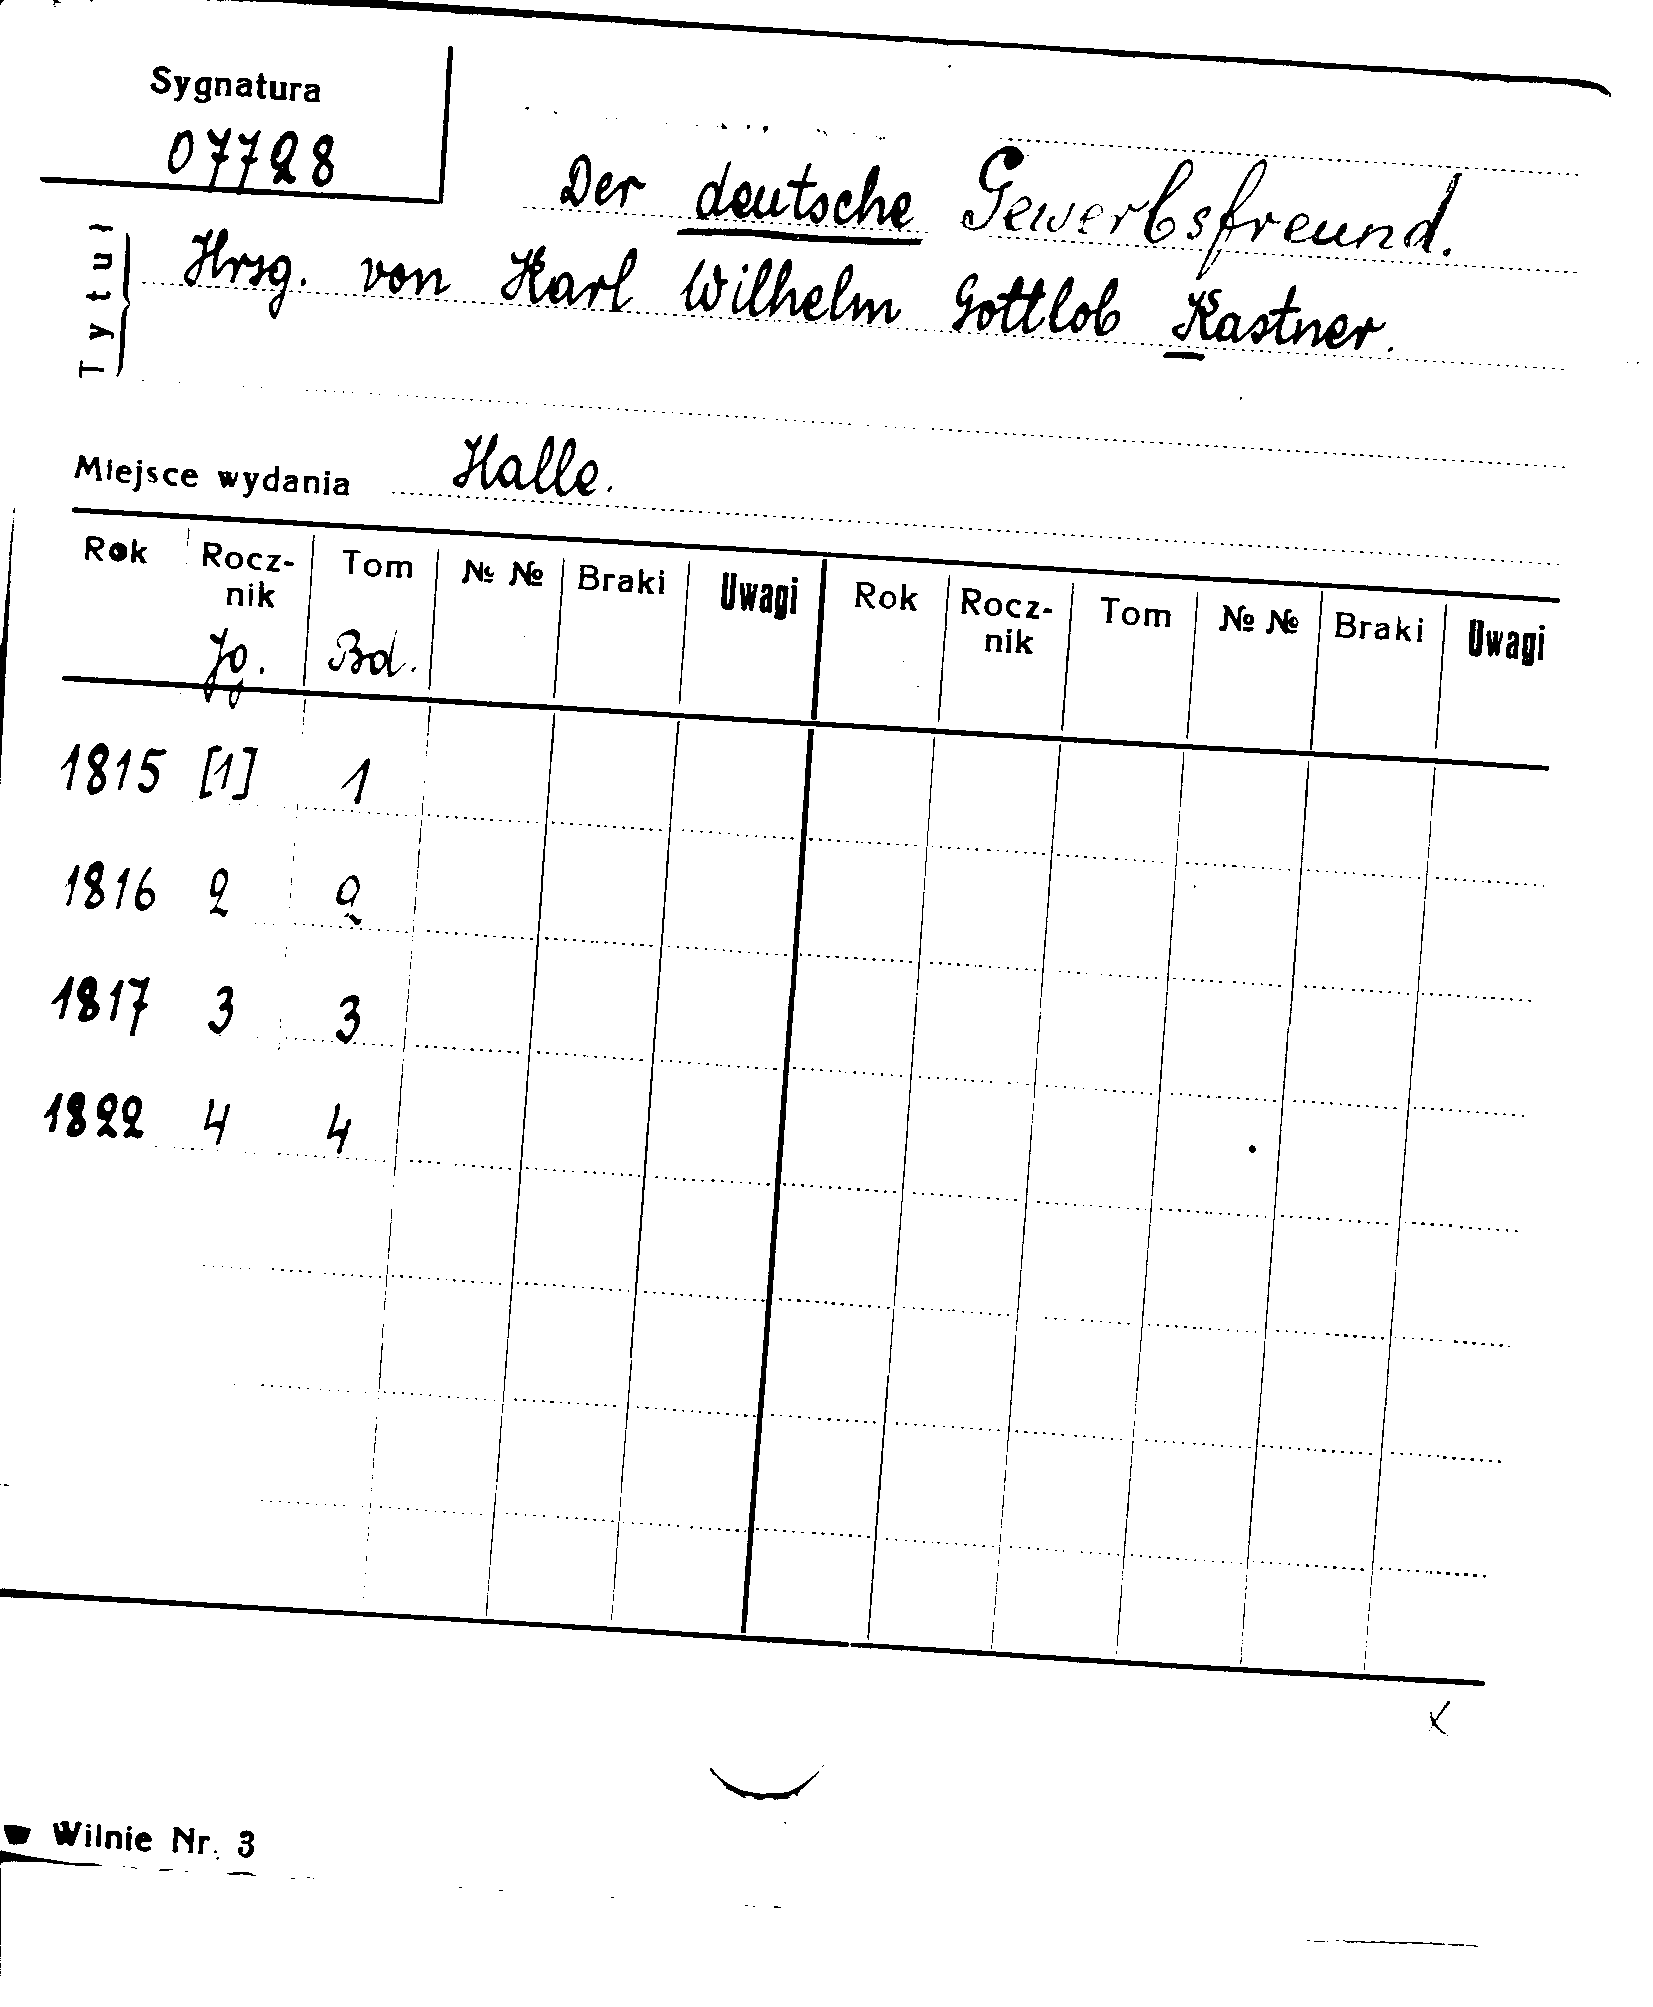 Sygnatura
07728
Tytuł
Der deutsche Gewerbsfreund.
Hrsg. von Karl Wilhelm Gottlob Kastner.
Miejsce wydania Halle.
Rok Rocz- Tom № № Braki Uwagi Rok Rocz- Tom № № Braki Uwagi
nik nik
Jg. Bd.
1815 [1] 1
1816 2 2
1817 3 3
1822 4 4
x
w Wilnie Nr. 3